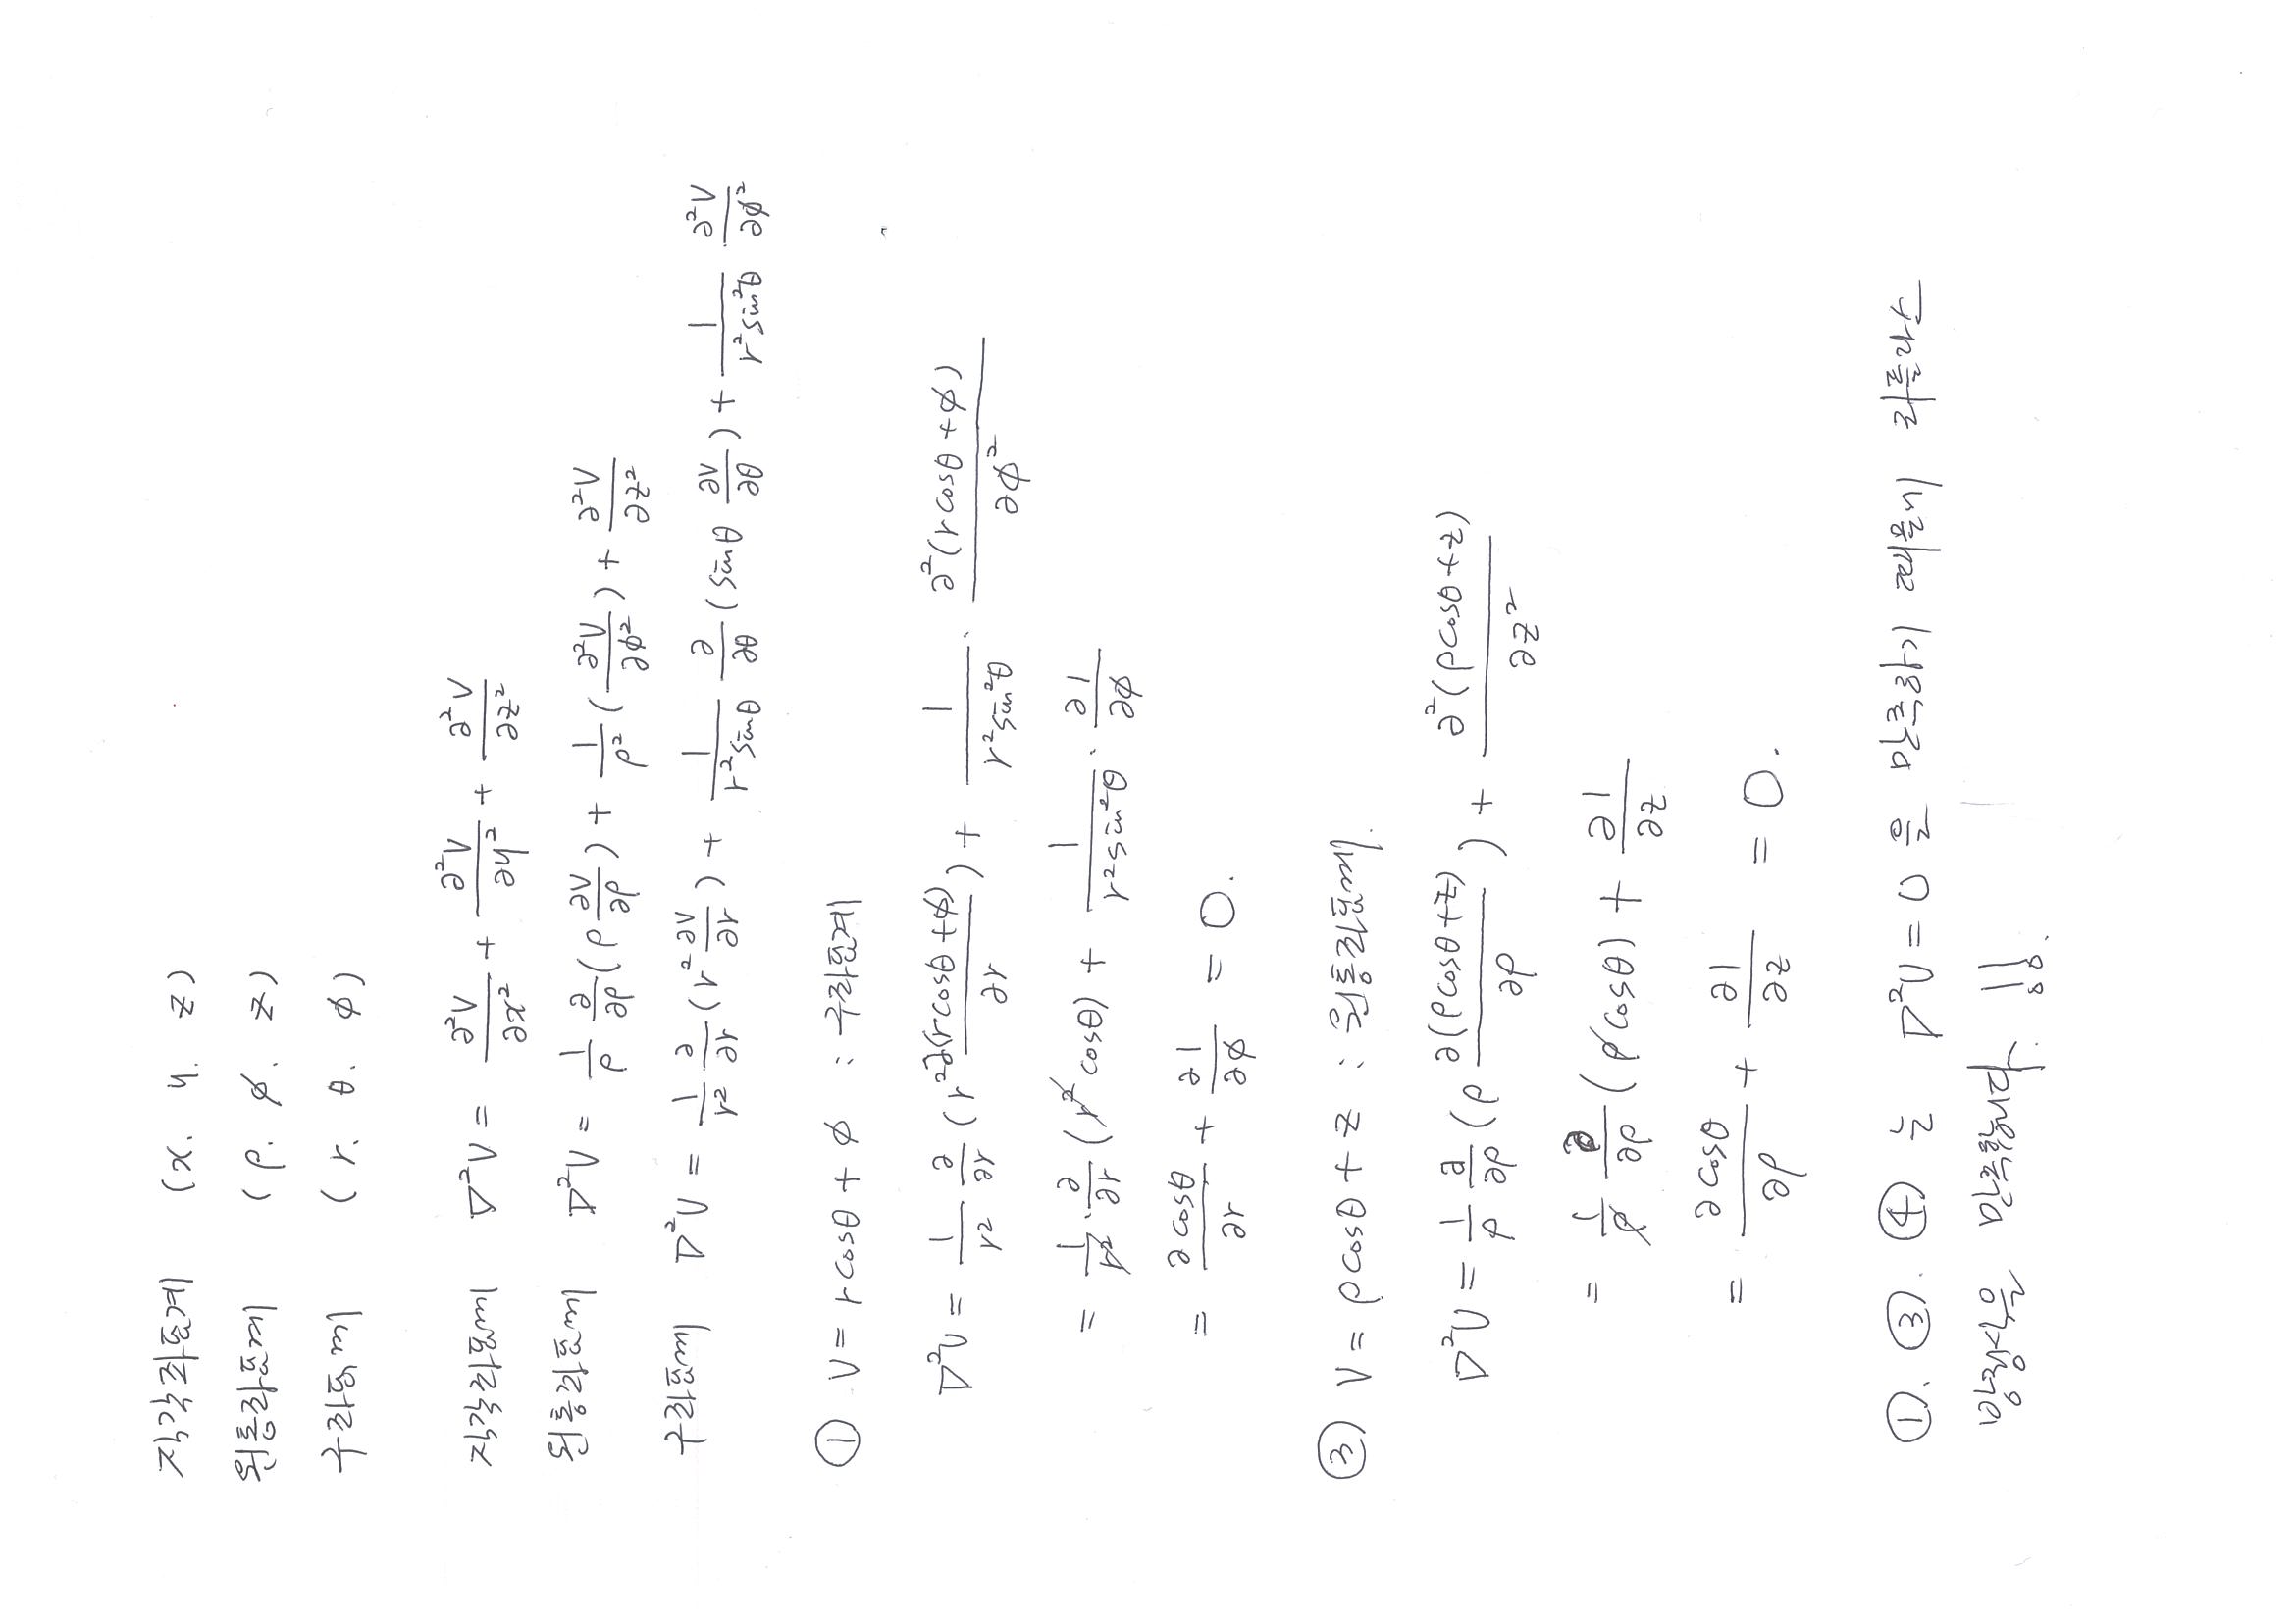 직각좌표계 (x. y. z)
원통좌표계 (ρ. ϕ. z)
구좌표계 (r. θ. ϕ)
직각좌표계 ∇²V = ∂²V/∂x² + ∂²V/∂y² + ∂²V/∂z²
원통좌표계 ∇²V = 1/ρ ∂/∂ρ (ρ ∂V/∂ρ) + 1/ρ² (∂²V/∂ϕ²) + ∂²V/∂z²
구좌표계 ∇²V = 1/r² ∂/∂r (r² ∂V/∂r) + 1/(r² sinθ) ∂/∂θ (sinθ ∂V/∂θ) + 1/(r² sin²θ) ∂²V/∂ϕ²
① V = r cosθ + ϕ : 구좌표계
∇²V = 1/r² ∂/∂r (r² ∂(r cosθ + ϕ)/∂r) + 1/(r² sin²θ) · ∂²(r cosθ + ϕ)/∂ϕ²
= 1/r² · ∂/∂r (r² cosθ) + 1/(r² sin²θ) · ∂1/∂ϕ
= ∂cosθ/∂r + ∂1/∂ϕ = 0.
③ V = ρ cosθ + z : 원통좌표계.
∇²V = 1/ρ ∂/∂ρ (ρ ∂(ρ cosθ + z)/∂ρ) + ∂²(ρ cosθ + z)/∂z²
= 1/ρ ∂/∂ρ (ρ cosθ) + ∂1/∂z
= ∂cosθ/∂ρ + ∂1/∂z = 0.
①. ③. ④ 는 ∇²V = 0 을 만족하기 때문에 라플라스
방정식을 만족한다. !!